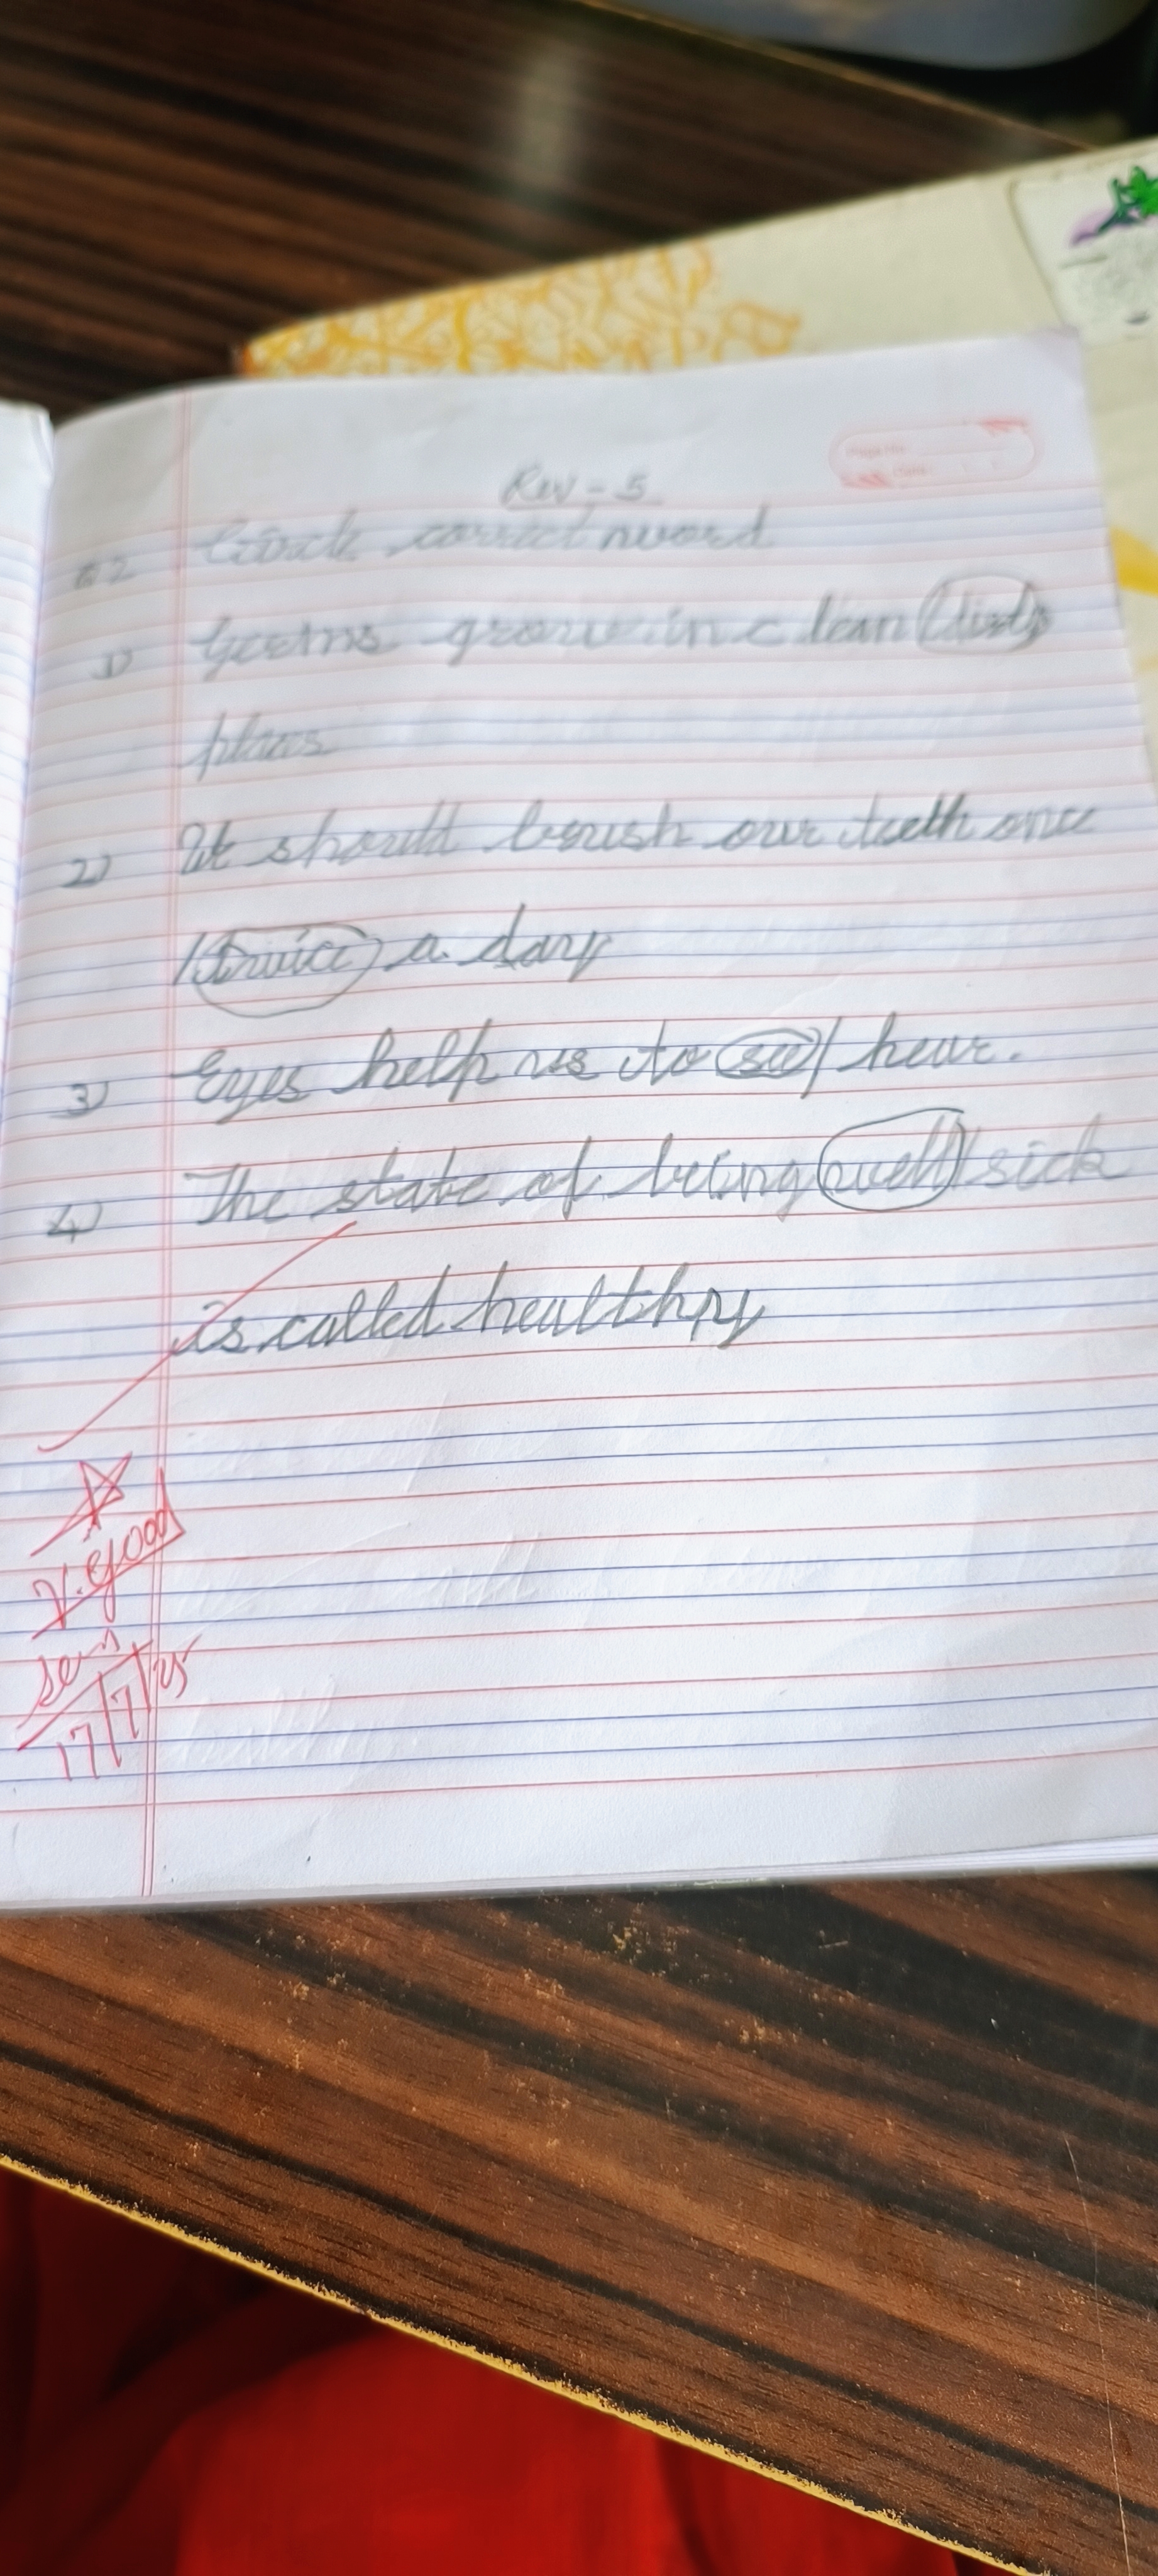 Rev - 5
Q.2 Circle correct word
1) Germs grow in clean/dirty
places
2) We should brush our teeth once
/twice a day
3) Eyes help us to see/hear.
4) The state of being well/sick
is called healthy
V. good
17/7/25